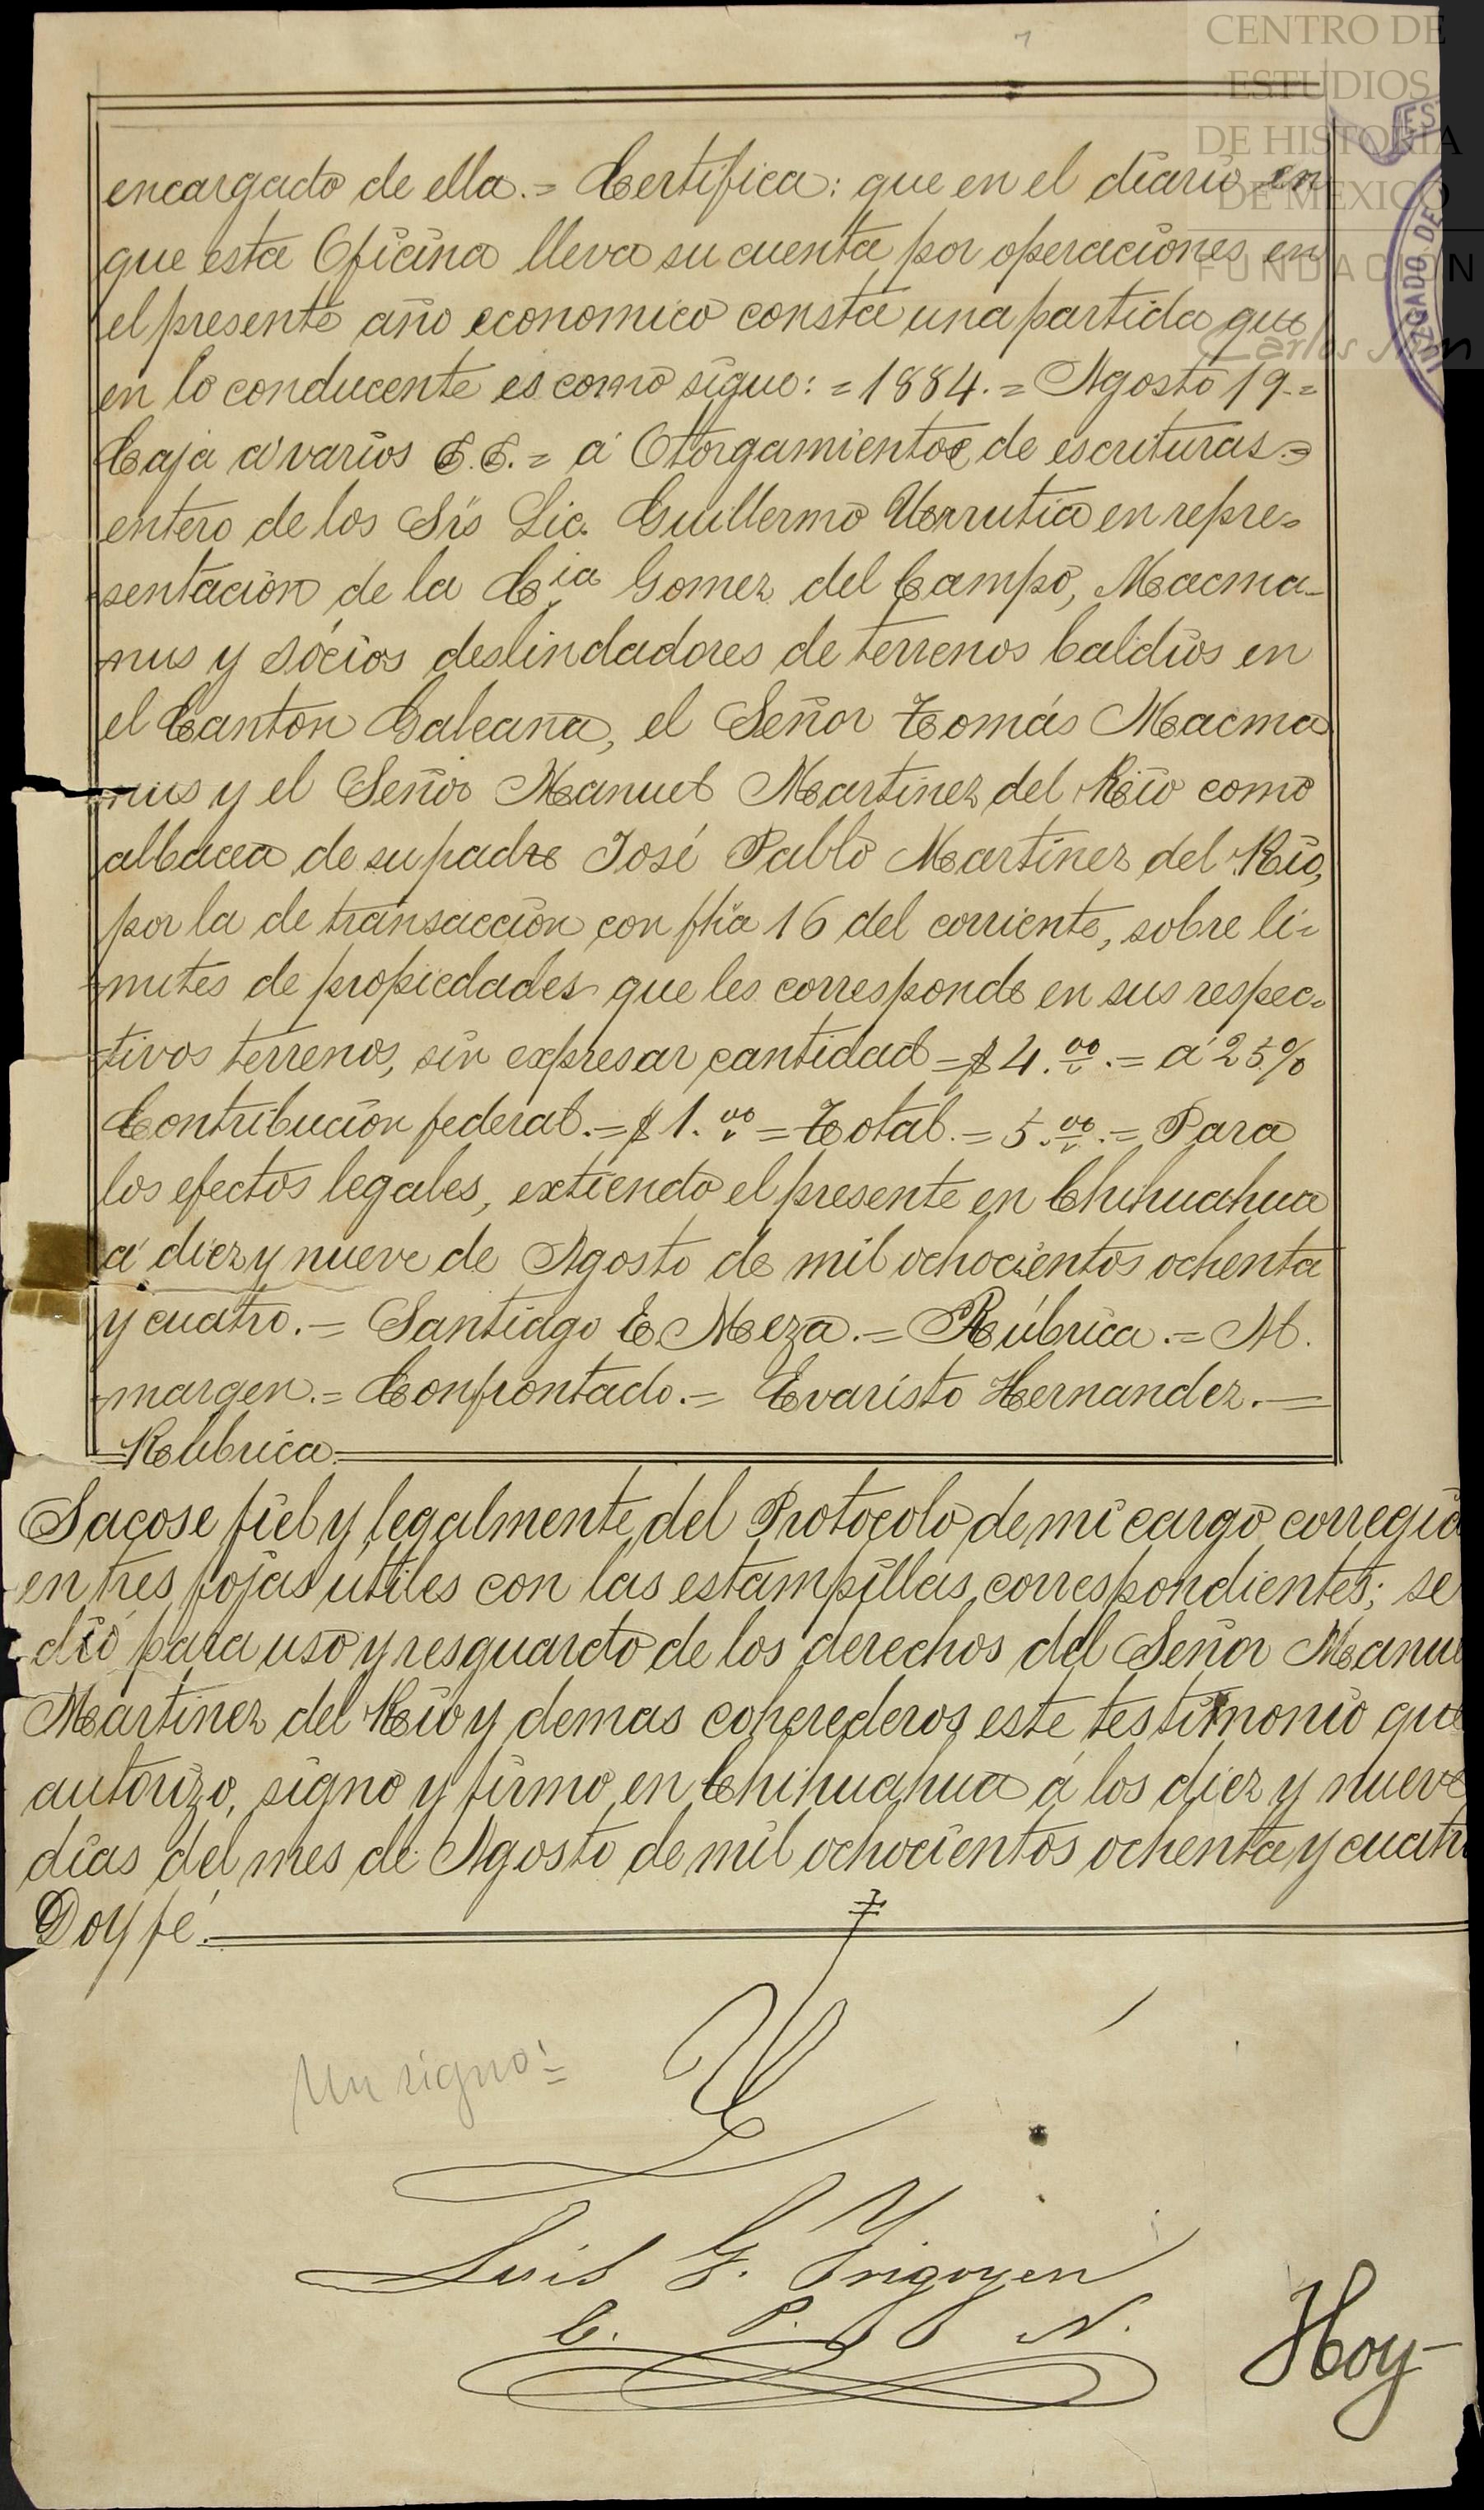 CENTRO DE
ESTUDIOS
DE HISTORIA
DE MEXICO
FUNDACIÓN
Carlos Slim
JUZGADO DE
encargado de ella.= Certifica: que en el diario en
que esta Oficina lleva su cuenta por operaciones en
el presente año economico consta una partida que
en lo conducente es como sigue: = 1884. = Agosto 19.=
Caja a varios C.C. = á Otorgamientos de escrituras.=
entero de los Srs Lic. Guillermo Urrutia en repre=
sentacion de la Cia Gomez del Campo, Macma-
nus y sócios deslindadores de terrenos baldios en
el Canton Galeana, el Señor Tomás Macma
nus y el Señor Manuel Martinez del Rio como
albacea de su padre José Pablo Martinez del Rio,
por la de transaccion con fha 16 del corriente, sobre li=
mites de propiedades que les corresponde en sus respec=
tivos terrenos, sin expresar cantidad = $4.00.= a 25%
Contribucion federal.= $1.00 = Total.= 5.00.= Para
los efectos legales, extiendo el presente en Chihuahua
a diez y nueve de Agosto de mil ochocientos ochenta
y cuatro.= Santiago E. Meza.= Rúbrica.= Al.
margen.= Confrontado.= Evaristo Hernandez.=
Rúbrica.
Sacose fiel y legalmente del Protocolo de mi cargo corregid
en tres fojas utiles con las estampillas correspondientes; se
dió para uso y resguardo de los derechos del Señor Manue
Martinez del Rio y demas coherederos este testimonio que
autorizo, signo y firmo en Chihuahua á los diez y nueve
dias del mes de Agosto de mil ochocientos ochenta y cuatr
Doy fé.
Un signo:=
Luis G. Yrigoyen
E. P. N.
Hoy-